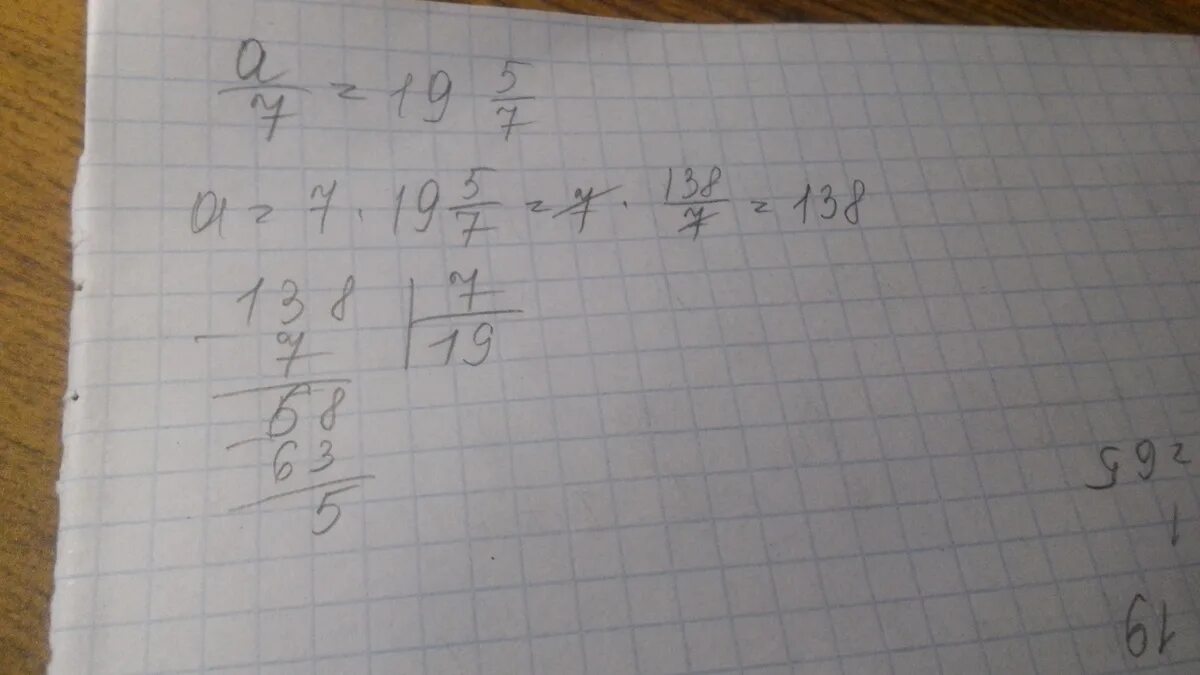 a/7 = 19 5/7
a = 7 · 19 5/7 = 7 · 138/7 = 138
138 | 7
- 7 | 19
68
- 63
5
= 65
1
19